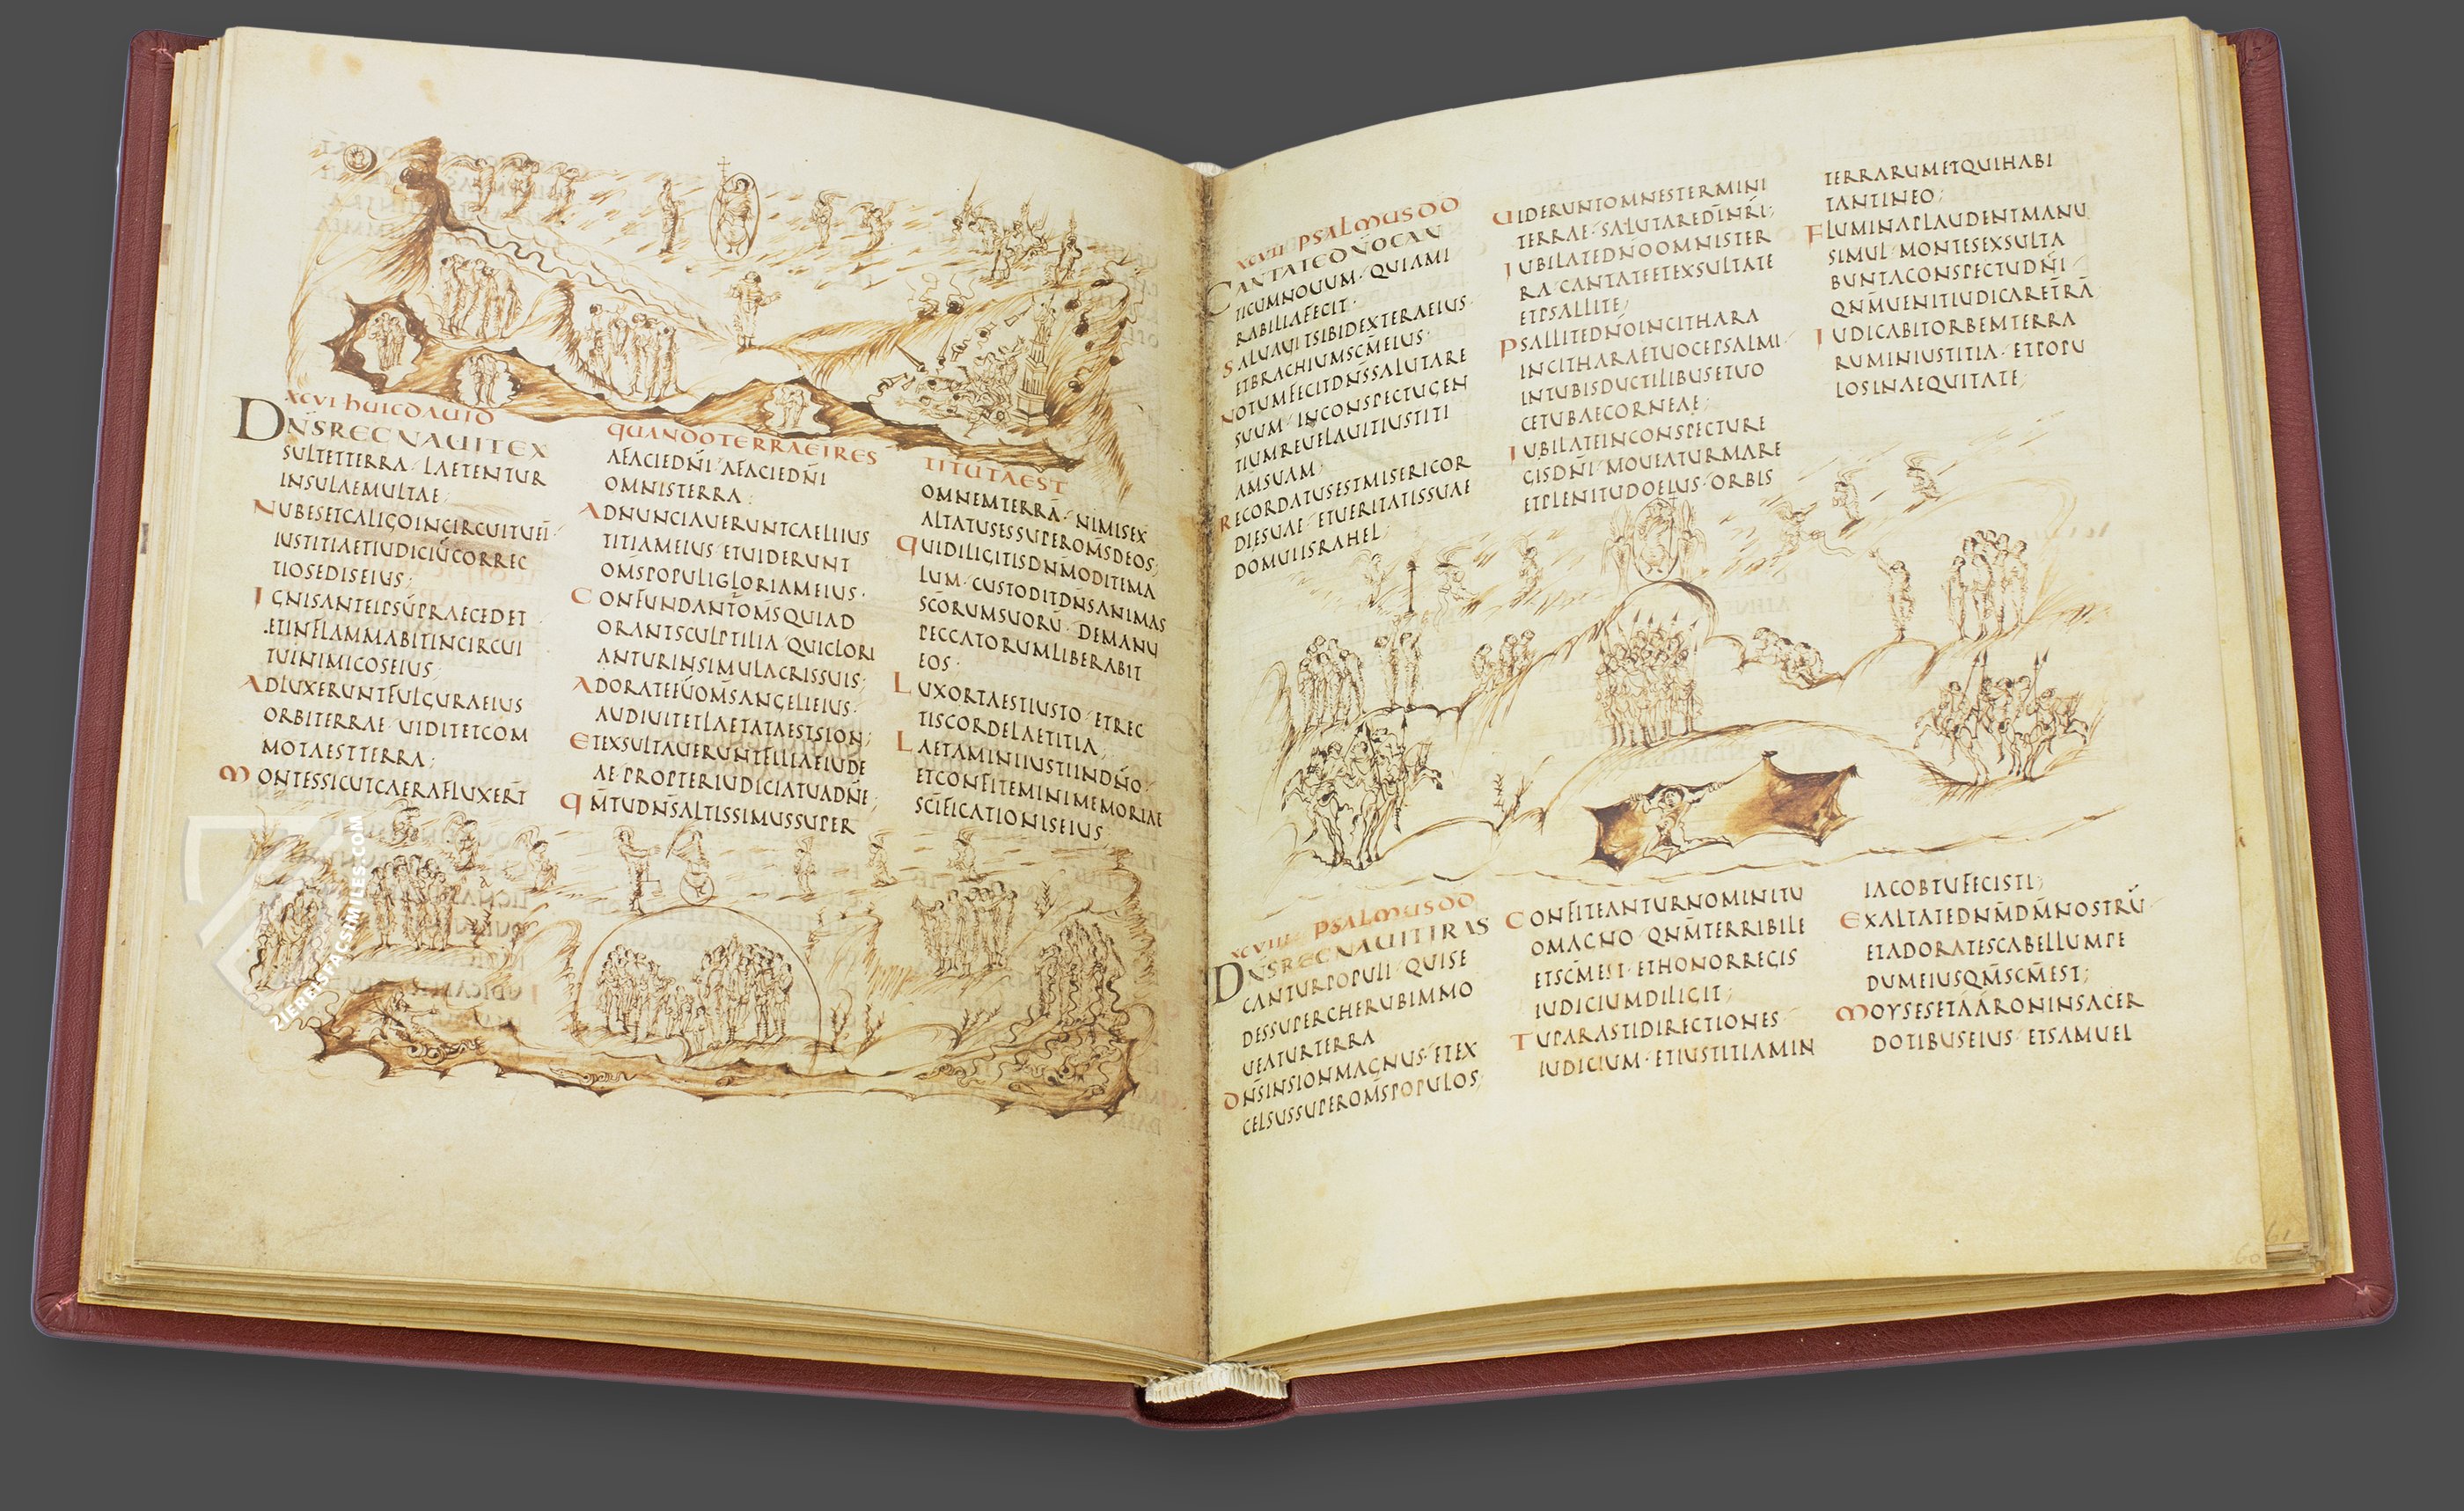 XCVI HUIC DAUID
DN̅S REGNAUIT EX
SULTET TERRA · LAETENTUR
INSULAE MULTAE;
NUBES ET CALIGO IN CIRCUITU EI ·
IUSTITIA ET IUDICIU̅ CORREC
TIO SEDIS EIUS;
IGNIS ANTE IPSU̅ PRAECEDET ·
ET INFLAMMABIT IN CIRCUI
TU INIMICOS EIUS;
ADLUXERUNT FULGURA EIUS
ORBI TERRAE · UIDIT ET COM
MOTA EST TERRA;
MONTES SICUT CAERA FLUXERT̅
QUANDO TERRA EI RES
A FACIE DN̅I · A FACIE DN̅I
OMNIS TERRA;
ADNUNCIAUERUNT CAELI IUS
TITIAM EIUS · ET UIDERUNT
OM̅S POPULI GLORIAM EIUS ·
CONFUNDANT̅ OM̅S QUI AD
ORANT SCULPTILIA · QUI GLORI
ANTUR IN SIMULACRIS SUIS;
ADORATE EU̅ OM̅S ANGELI EIUS ·
AUDIUIT ET LAETATA EST SION;
ET EXSULTAUERUNT FILIAE IUDE
AE · PROPTER IUDICIA TUA DN̅E;
QM̅ TU DN̅S ALTISSIMUS SUPER
TITUTA EST
OMNEM TERRA̅ · NIMIS EX
ALTATUS ES SUPER OM̅S DEOS;
QUI DILIGITIS DN̅M ODITE MA
LUM · CUSTODIT DN̅S ANIMAS
SC̅ORUM SUORU̅ · DE MANU
PECCATORUM LIBERABIT
EOS ·
LUX ORTA EST IUSTO · ET REC
TIS CORDE LAETITIA;
LAETAMINI IUSTI IN DN̅O ·
ET CONFITEMINI MEMORIAE
SC̅IFICATIONIS EIUS;
XCVII PSALMUS DD
CANTATE DN̅O CAN
TICUM NOUUM · QUIA MI
RABILIA FECIT ·
SALUAUIT SIBI DEXTERA EIUS ·
ET BRACHIUM SC̅M EIUS ·
NOTUM FECIT DN̅S SALUTARE
SUUM · IN CONSPECTU GEN
TIUM REUELAUIT IUSTITI
AM SUAM;
RECORDATUS EST MISERICOR
DIE SUAE · ET UERITATIS SUAE
DOMUI ISRAHEL;
UIDERUNT OMNES TERMINI
TERRAE · SALUTARE DI̅ NR̅I;
IUBILATE DN̅O OMNIS TER
RA · CANTATE ET EXSULTATE
ET PSALLITE;
PSALLITE DN̅O IN CITHARA
IN CITHARA ET UOCE PSALMI ·
IN TUBIS DUCTILIBUS ET UO
CE TUBAE CORNEAE;
IUBILATE IN CONSPECTU RE
GIS DN̅I · MOUEATUR MARE
ET PLENITUDO EIUS · ORBIS
TERRARUM ET QUI HABI
TANT IN EO;
FLUMINA PLAUDENT MANU
SIMUL · MONTES EXSULTA
BUNT A CONSPECTU DN̅I ·
QN̅M UENIT IUDICARE T̅RA̅
IUDICABIT ORBEM TERRA
RUM IN IUSTITIA · ET POPU
LOS IN AEQUITATE;
XCVIII PSALMUS DD
DN̅S REGNAUIT IRAS
CANTUR POPULI · QUI SE
DES SUPER CHERUBIM MO
UEATUR TERRA
DN̅S IN SION MAGNUS · ET EX
CELSUS SUPER OM̅S POPULOS;
CONFITEANTUR NOMINI TU
O MAGNO · QN̅M TERRIBILE
ET SC̅M EST · ET HONOR REGIS
IUDICIUM DILIGIT;
TU PARASTI DIRECTIONES ·
IUDICIUM · ET IUSTITIAM IN
IACOB TU FECISTI;
EXALTATE DN̅M DM̅ NOSTRU̅ ·
ET ADORATE SCABELLUM PE
DUM EIUS QM̅ SC̅M EST;
MOYSES ET AARON IN SACER
DOTIBUS EIUS · ET SAMUEL
61
60
ZIEREISFACSIMILES.COM